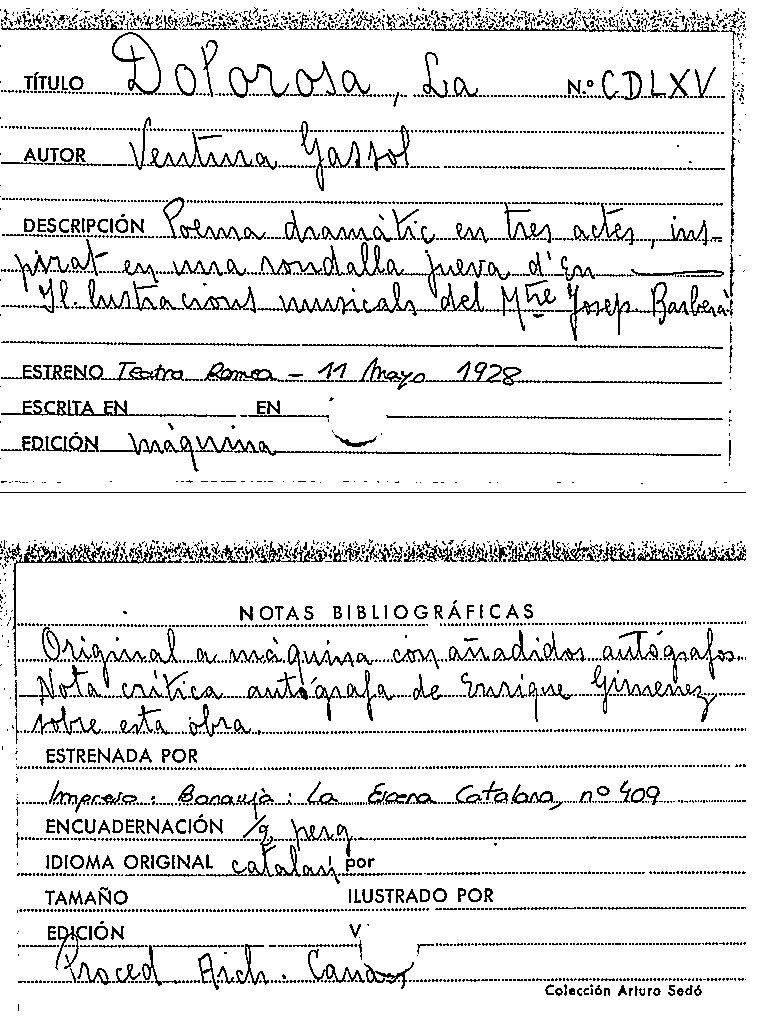 TÍTULO Dolorosa, La N.º CDLXV
AUTOR Ventura Gassol
DESCRIPCIÓN Poema dramàtic en tres actes, ins-
pirat en una rondalla jueva d'En
Il.lustracions musicals del Mtre Josep Barberà
ESTRENO Teatro Romea - 11 Mayo 1928
ESCRITA EN EN
EDICIÓN màquina
NOTAS BIBLIOGRÁFICAS
Original a màquina con añadidos autógrafos.
Nota crítica autógrafa de Enrique Gimenez
sobre esta obra.
ESTRENADA POR
Impreso: Bonavia: La Escena Catalana, nº 409
ENCUADERNACIÓN /2 perg.
IDIOMA ORIGINAL catalan por
TAMAÑO ILUSTRADO POR
EDICIÓN V
Proced Arch.
Colección Arturo Sedó